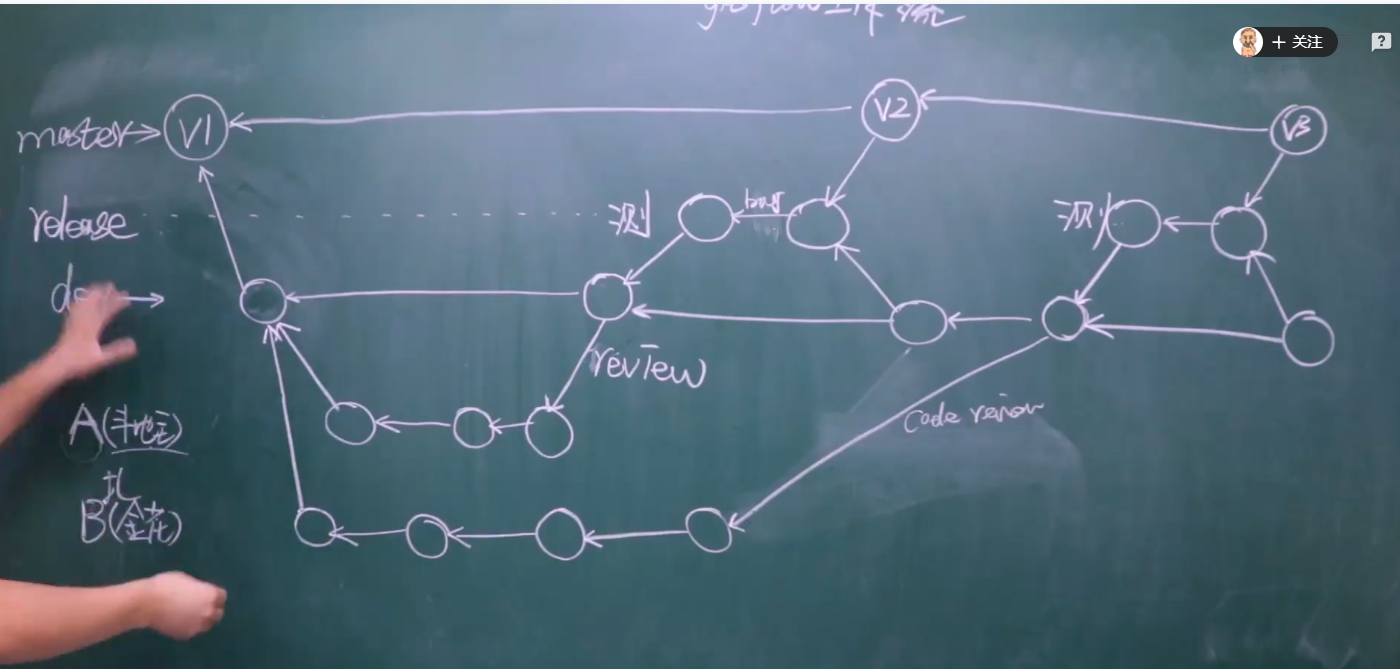 gitflow工作流
+ 关注
?
master V1 V2 V3
release 测 bug 测
A(斗地主) review
code review
扎
B(金花)